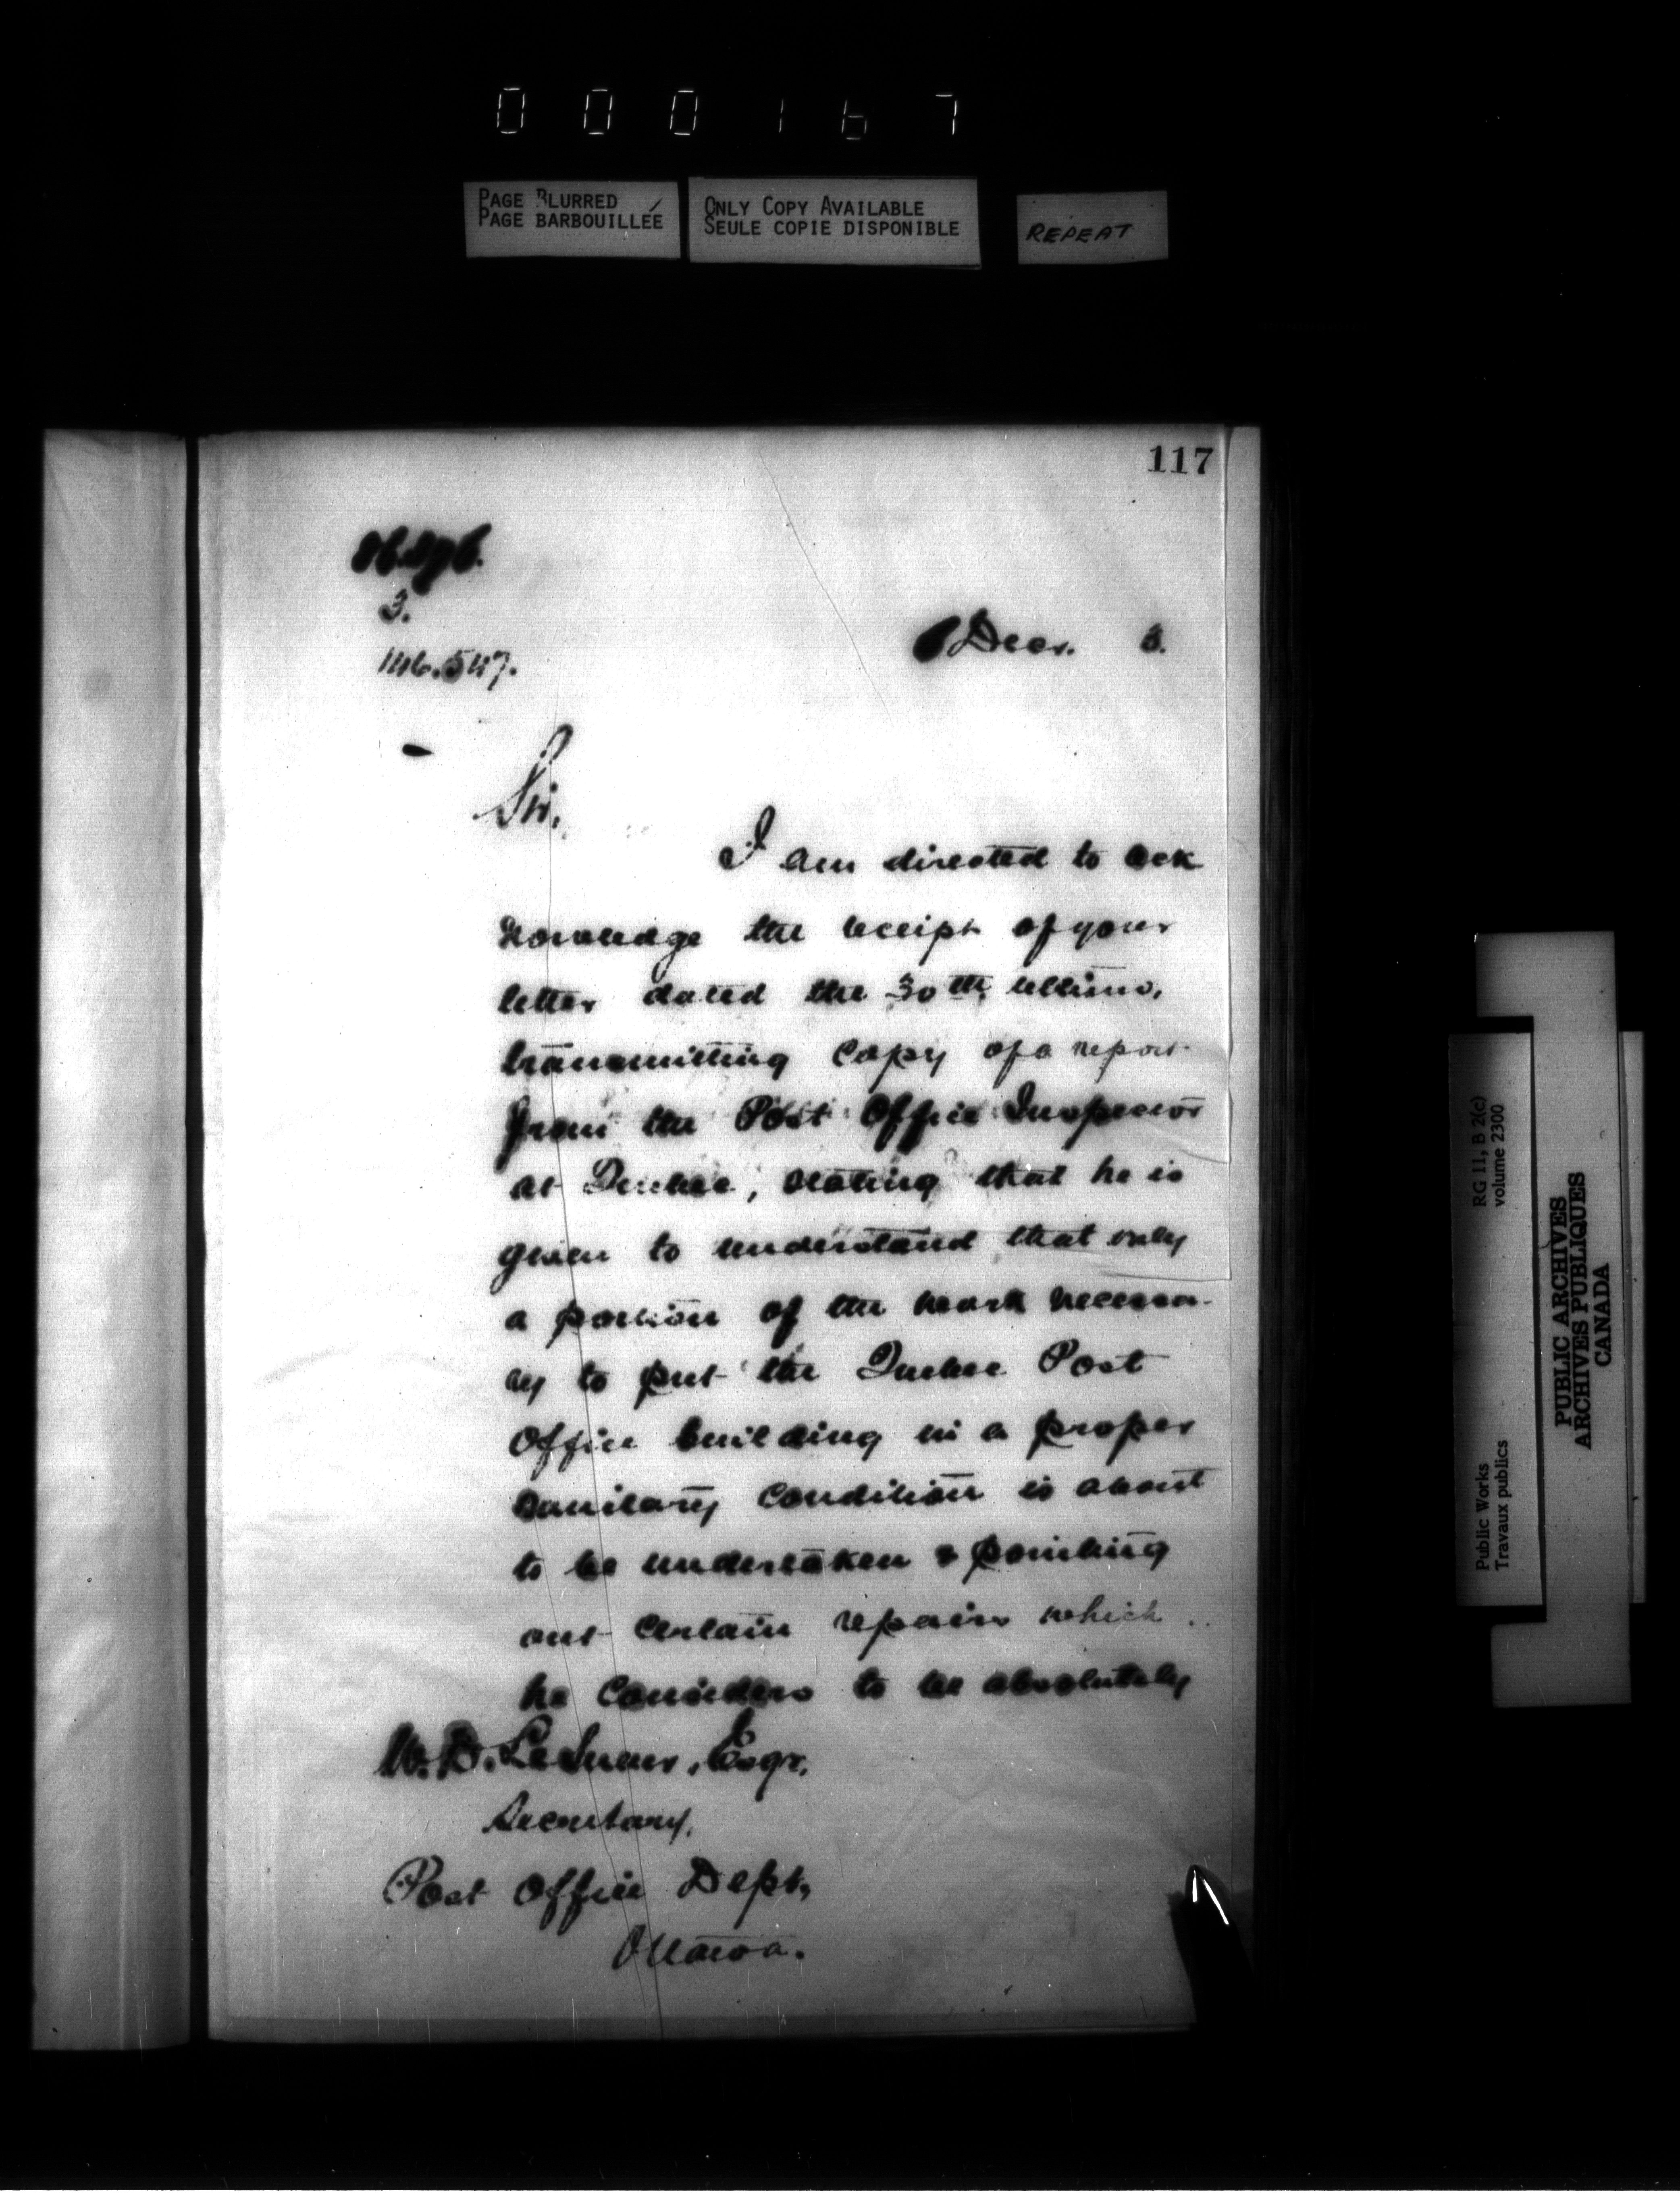 000167
PAGE BLURRED
PAGE BARBOUILLÉE
ONLY COPY AVAILABLE
SEULE COPIE DISPONIBLE
REPEAT
117
3.
146.547.
Decr. 3.
Sir,
I am directed to ack
nowledge the receipt of your
letter dated the 30th. ultimo,
transmitting copy of a report
from the Post Office Inspector
at Quebec, stating that he is
given to understand that only
a portion of the work necessa-
ry to put the Quebec Post
Office building in a proper
sanitary condition is about
to be undertaken & pointing
out certain repairs which
he considers to be absolutely
W. D. LeSueur, Esqr.
Secretary,
Post Office Dept,
Ottawa.
Public Works
Travaux publics
RG 11, B 2(c)
volume 2300
PUBLIC ARCHIVES
ARCHIVES PUBLIQUES
CANADA